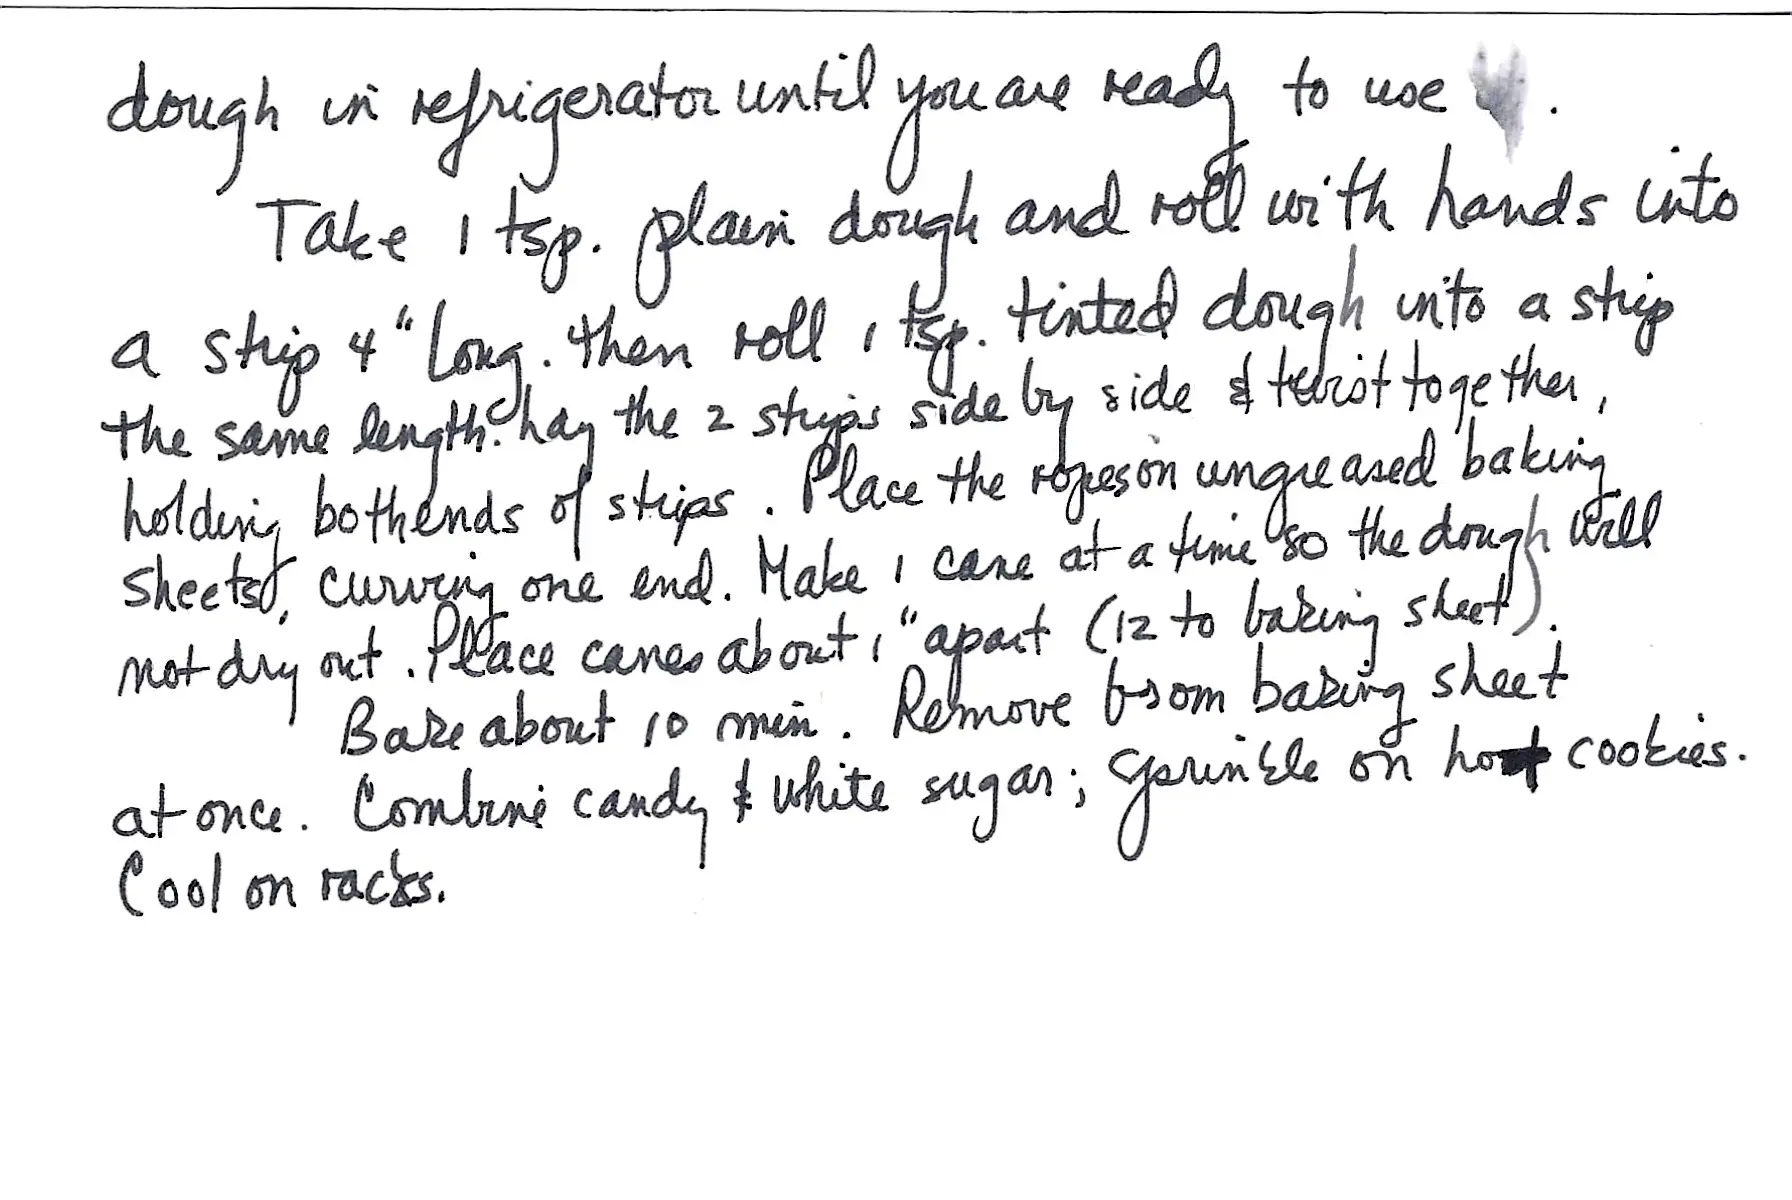 dough in refrigerator until you are ready to use .
Take 1 tsp. plain dough and roll with hands into
a strip 4" long. Then roll 1 tsp. tinted dough into a strip
the same length. Lay the 2 strips side by side & twist together,
holding both ends of strips. Place the ropes on ungreased baking
sheets, curving one end. Make 1 cane at a time so the dough will
not dry out. Place canes about 1" apart (12 to baking sheet).
Bake about 10 min. Remove from baking sheet
at once. Combine candy & white sugar; sprinkle on hot cookies.
Cool on racks.